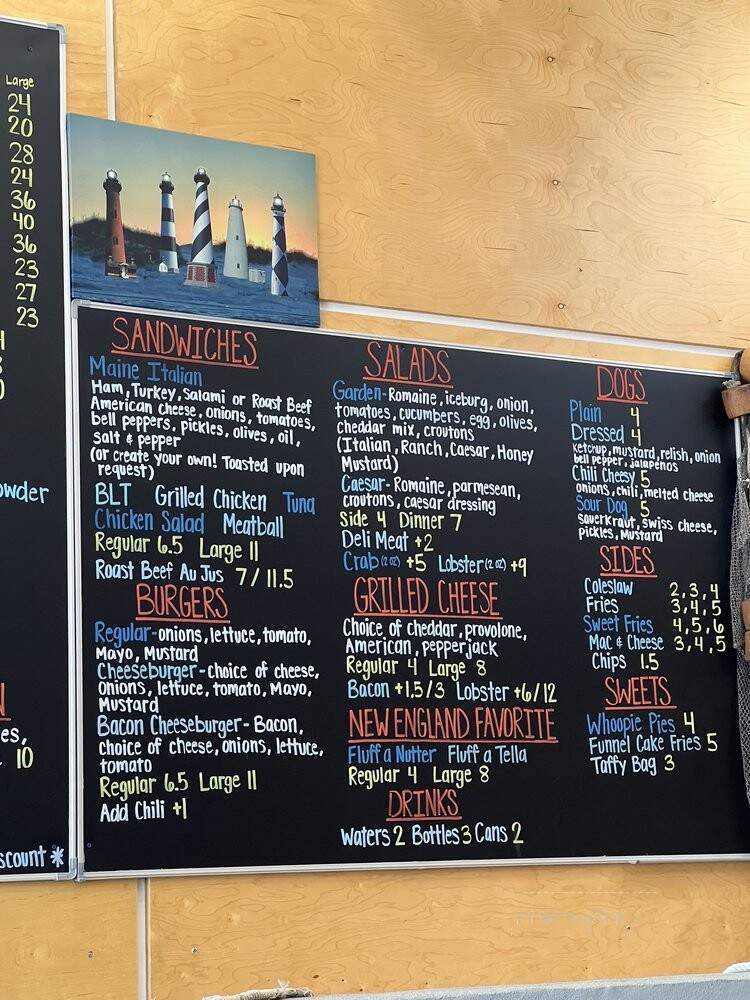 Large
24
20
28
24
36
40
36
23
27
23
owder
es,
10
scount *
SANDWICHES
Maine Italian
Ham, Turkey, Salami or Roast Beef
American cheese, onions, tomatoes,
bell peppers, pickles, olives, oil,
salt & pepper
(or create your own! Toasted upon
request)
BLT Grilled Chicken Tuna
Chicken Salad Meatball
Regular 6.5 Large 11
Roast Beef Au Jus 7/11.5
BURGERS
Regular-onions, lettuce, tomato,
Mayo, Mustard
Cheeseburger-choice of cheese,
onions, lettuce, tomato, Mayo,
Mustard
Bacon Cheeseburger- Bacon,
choice of cheese, onions, lettuce,
tomato
Regular 6.5 Large 11
Add Chili +1
SALADS
Garden-Romaine, iceburg, onion,
tomatoes, cucumbers, egg, olives,
cheddar mix, croutons
(Italian, Ranch, Caesar, Honey
Mustard)
Caesar-Romaine, parmesean,
croutons, caesar dressing
Side 4 Dinner 7
Deli Meat +2
Crab (2 oz) +5 Lobster (2 oz) +9
GRILLED CHEESE
Choice of cheddar, provolone,
American, pepperjack
Regular 4 Large 8
Bacon +1.5/3 Lobster +6/12
NEW ENGLAND FAVORITE
Fluff a Nutter Fluff a Tella
Regular 4 Large 8
DRINKS
Waters 2 Bottles 3 Cans 2
DOGS
Plain 4
Dressed 4
ketchup, mustard, relish, onion
bell pepper, jalapenos
Chili Cheesy 5
onions, chili, melted cheese
Sour Dog 5
Sauerkraut, swiss cheese,
pickles, Mustard
SIDES
Coleslaw 2, 3, 4
Fries 3, 4, 5
Sweet Fries 4, 5, 6
Mac & Cheese 3, 4, 5
Chips 1.5
SWEETS
Whoopie Pies 4
Funnel Cake Fries 5
Taffy Bag 3